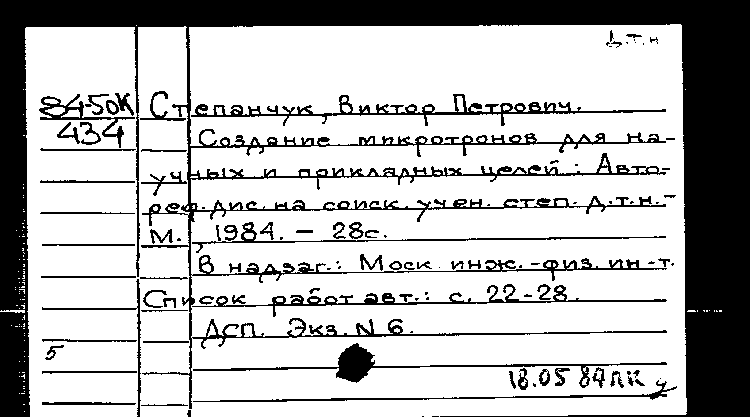 д.т.н
84-5ДК Степанчук, Виктор Петрович.
434 Создание микротронов для на-
учных и прикладных целей: Авто-
реф. дис. на соиск. учен. степ. д.т.н.-
М., 1984. - 28с.
В надзаг.: Моск. инж.-физ. ин-т.
Список работ авт.: с. 22-28.
ДСП. Экз. N 6.
5
18.05 84 ПК